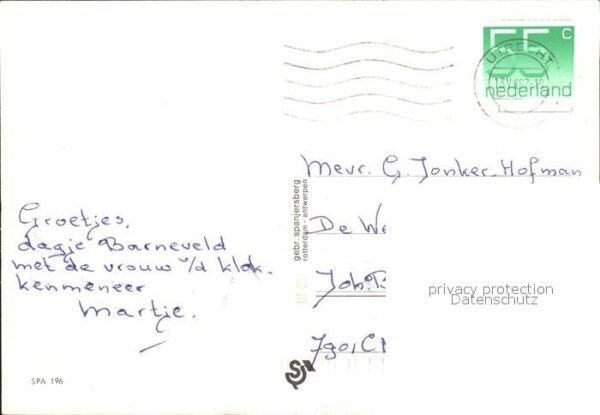 55 C
nederland
UTRECHT
Groetjes,
dagje Barneveld
met de vrouw v/d klok.
kenmeneer
Martje.
SPA 196
gebr. spanjersberg
rotterdam - antwerpen
Mevr. G. Jonker-Hofman
De We
Joh.
7901 C
privacy protection
Datenschutz